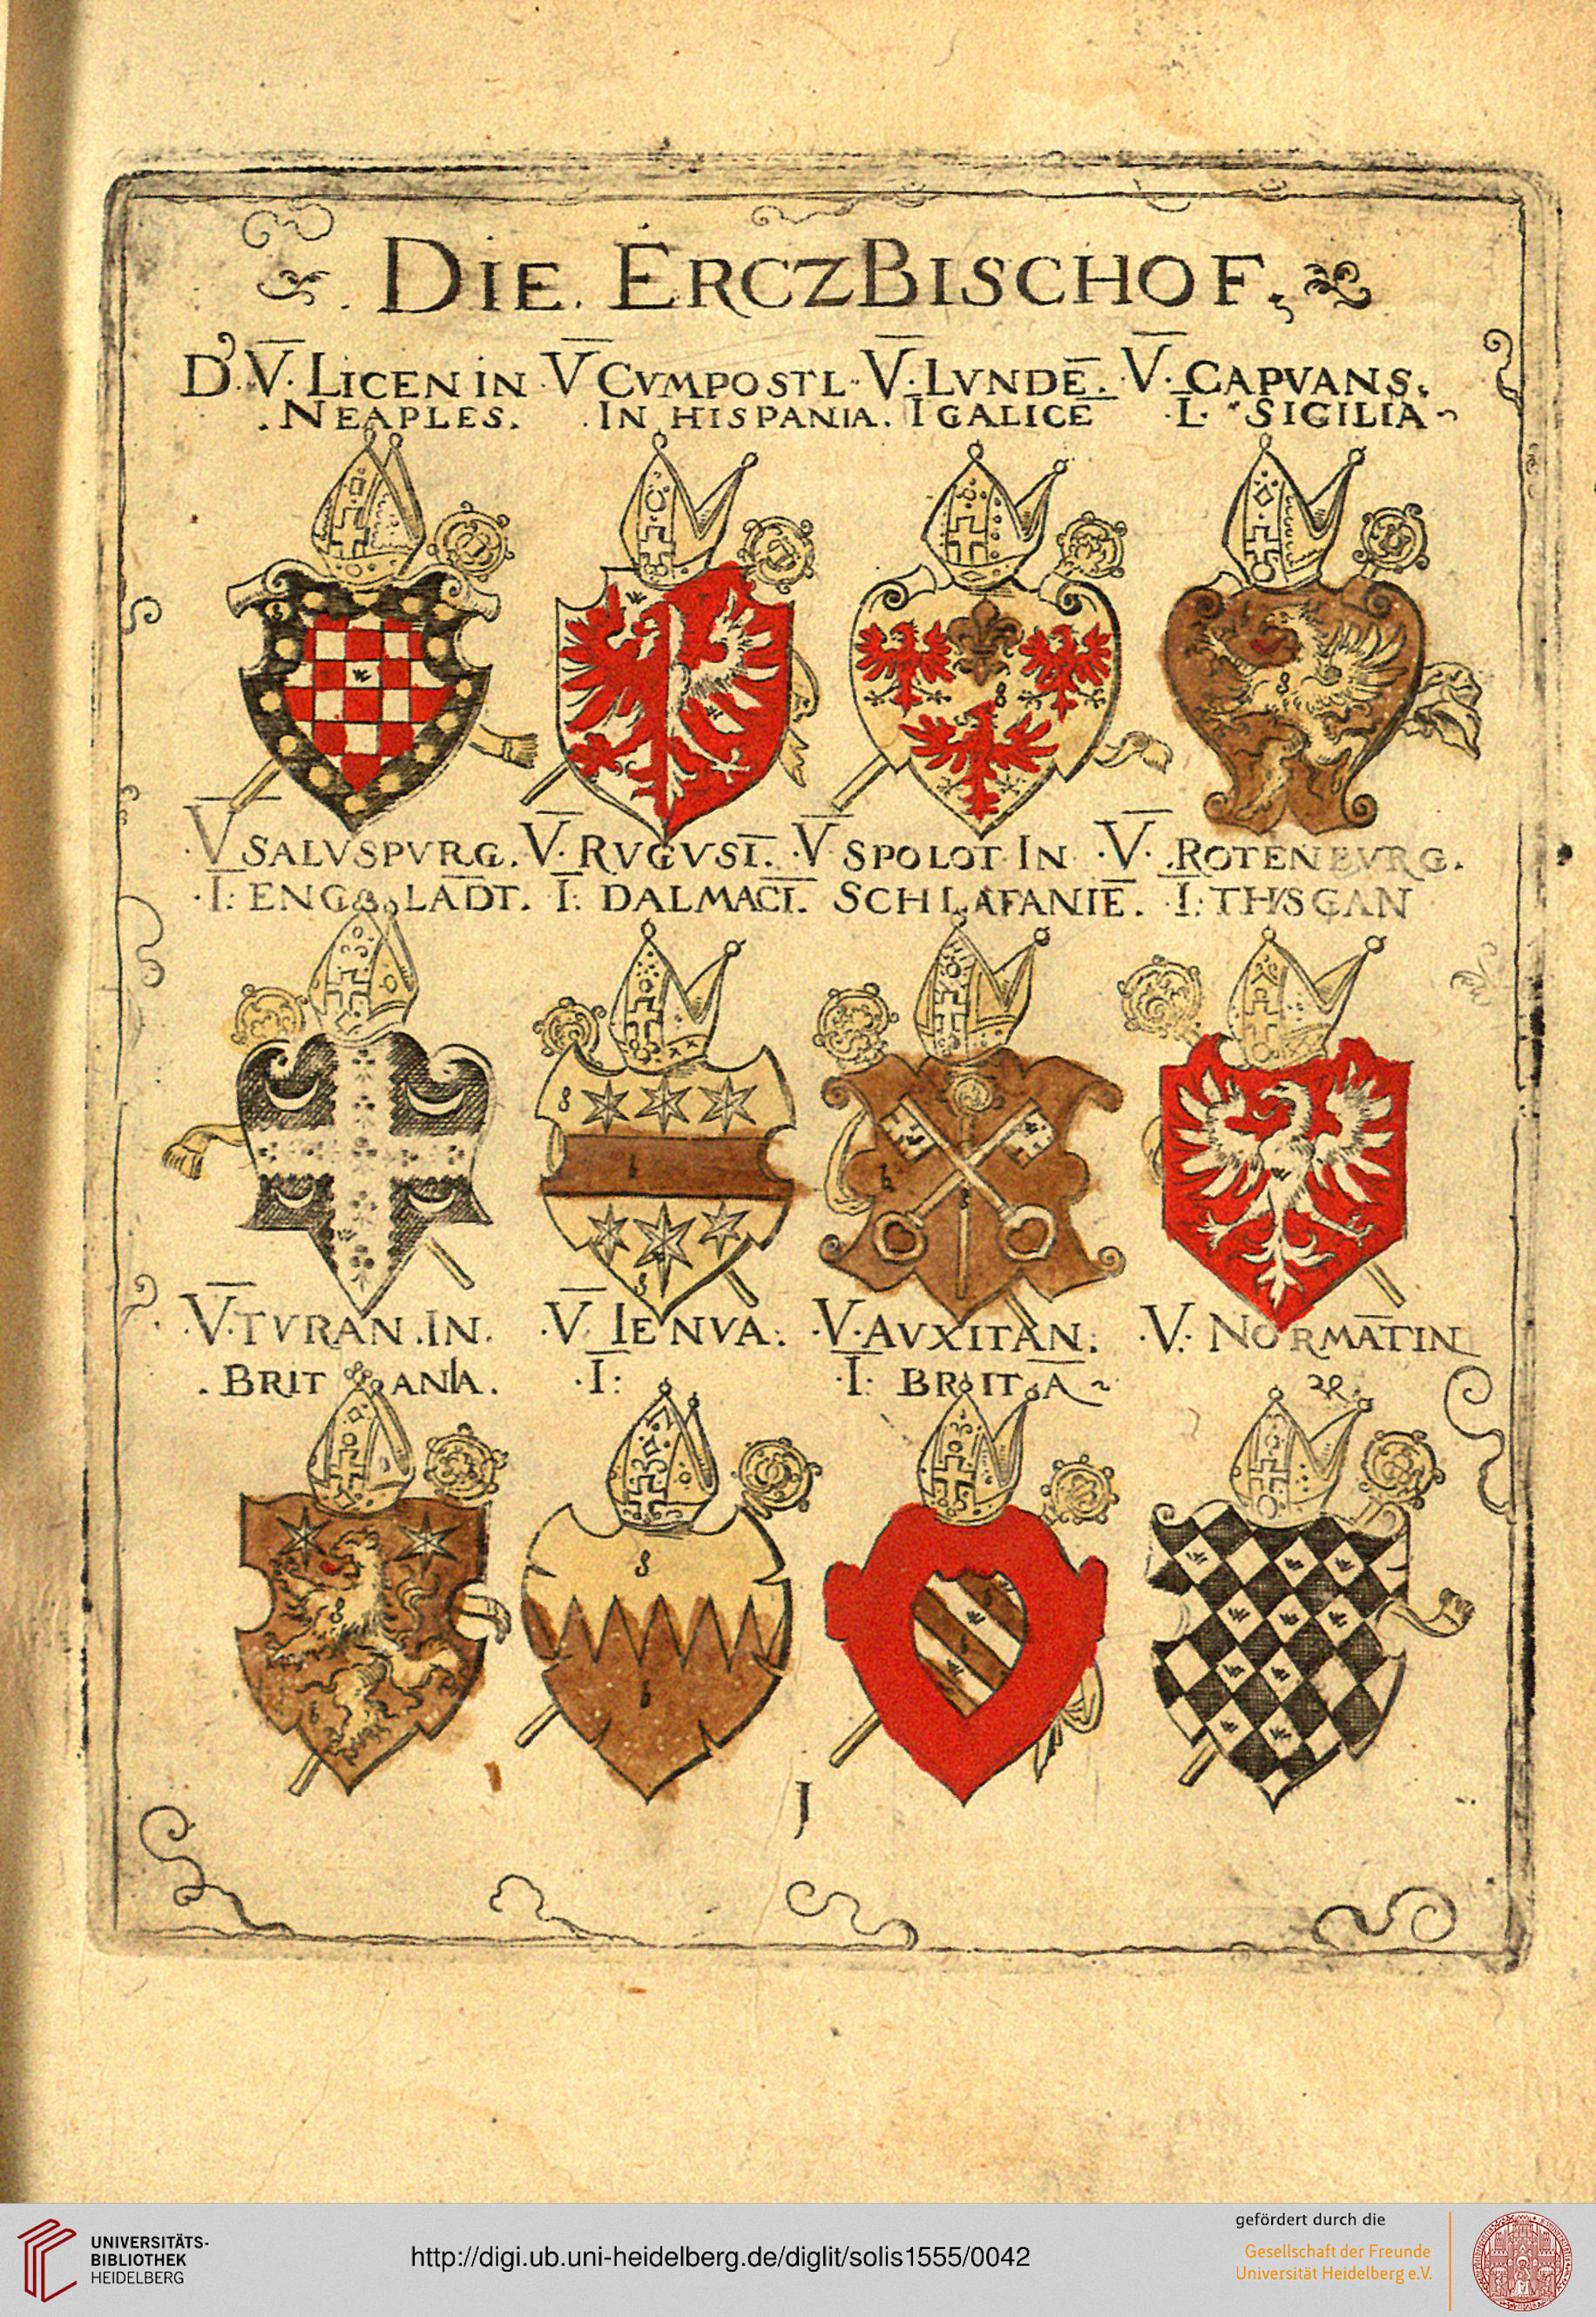 DIE. ERCZBISCHOF.
D. V̅. LICEN IN V̅ CVMPOSTL. V̅. LVNDE̅. V̅. CAPVANS.
. NEAPLES. . IN HISPANIA. I̅ GALICE ·I̅· SICILIA~
· V̅ SALVSPVRG. V̅. RVGVSI̅. · V̅ SPOLOT IN · V̅. .ROTENBVRG.
· I̅: ENG LA̅DT. I̅: DALMACI̅. SCHLAFANIE̅. · I̅: THVSGAN
· V̅. TVRAN . IN. · V̅ IENVA: · V. AVXITAN: · V: NORMA̅TIN
. BRIT ANIA. · I̅: · I̅: BRIT A̅~
J
UNIVERSITÄTS-
BIBLIOTHEK
HEIDELBERG
http://digi.ub.uni-heidelberg.de/diglit/solis1555/0042
gefördert durch die
Gesellschaft der Freunde
Universität Heidelberg e.V.